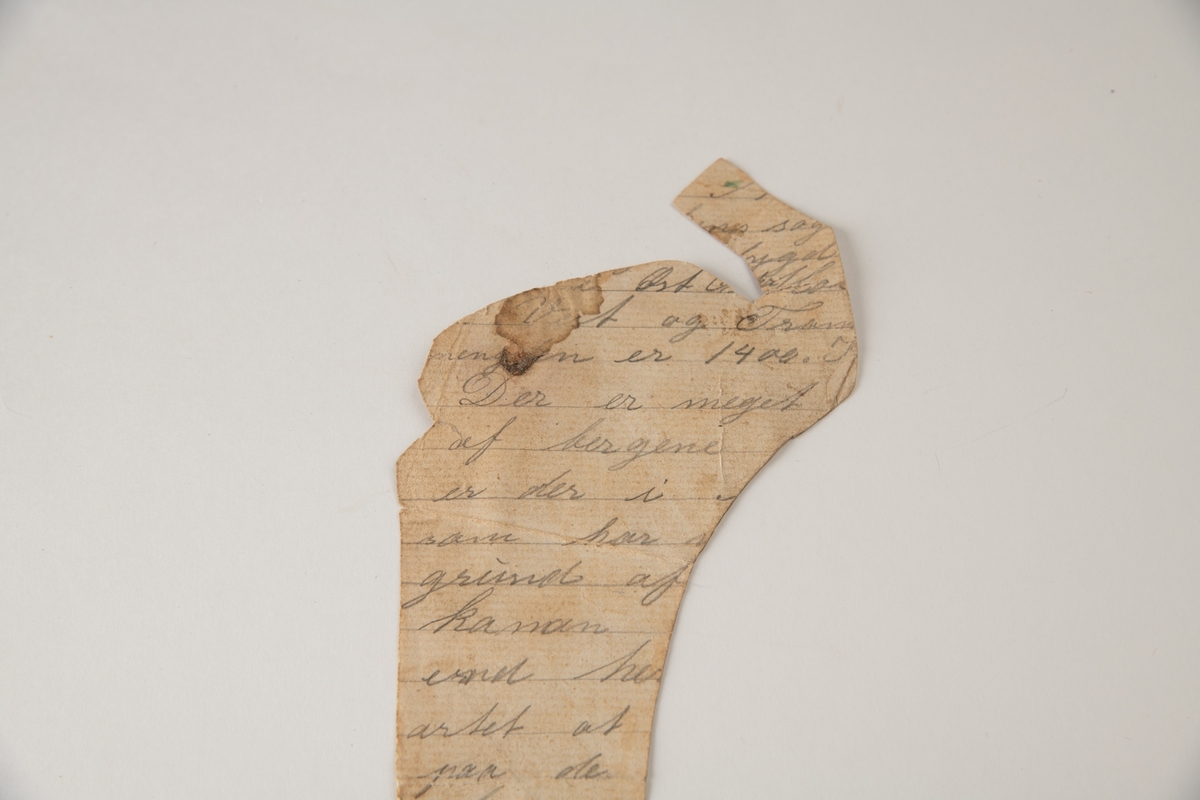 sog
bygd
Øst
Vest og Trom
en er 1400.
Der er meget
af bergene
er der i
som har
grund af
kanan
end he
artet at
paa de